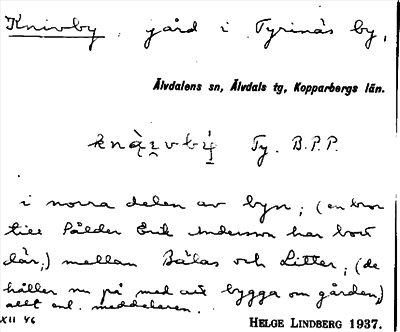 Knivby, gård i Tyrinäs by,
Älvdalens sn, Älvdals tg, Kopparbergs län.
Ty. B.P.P.
i norra delen av byn; (en bror
till Pålder Erik Andersson har bott
där;) mellan Bälas och Litter; (de
håller nu på med att bygga om gården,)
allt enl. meddelaren.
XII 46
HELGE LINDBERG 1937.